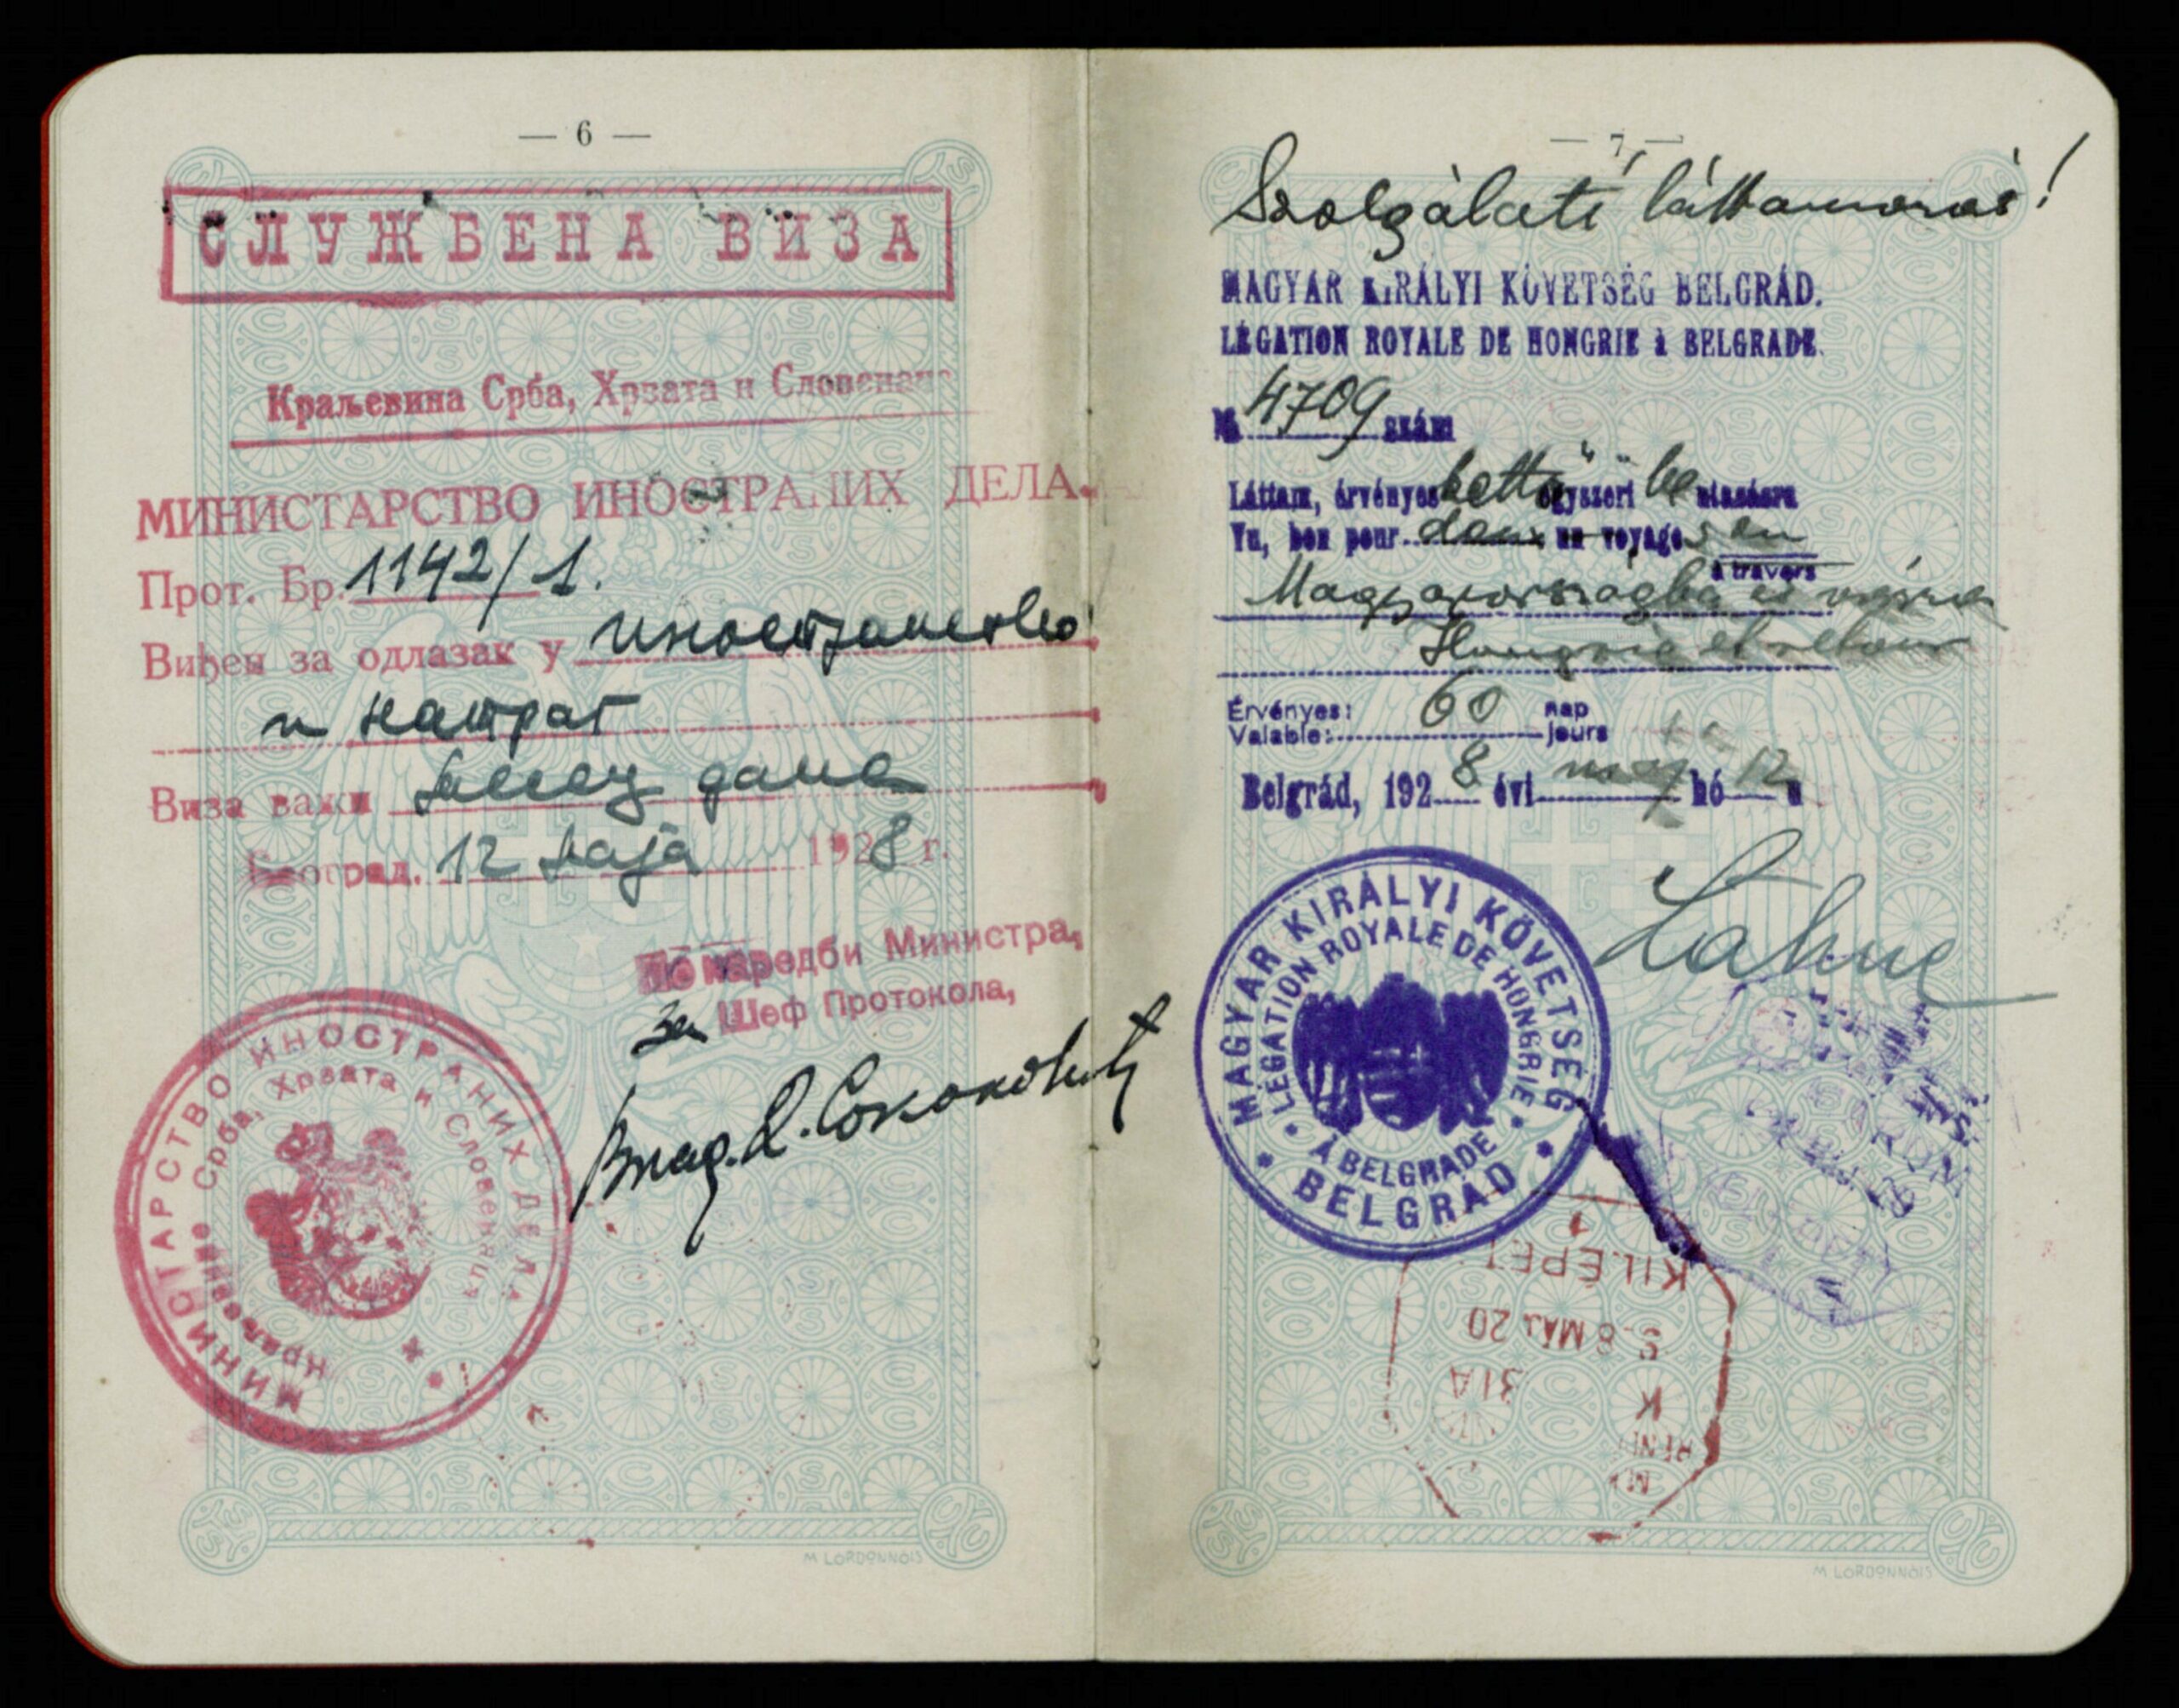 — 6 —
СЛУЖБЕНА ВИЗА
Краљевина Срба, Хрвата и Словенаца
МИНИСТАРСТВО ИНОСТРАНИХ ДЕЛА.
Прот. Бр. 1142/1.
Виђен за одлазак у иностранство
и натраг
Виза важи месец дана
Београд. 12 маја 1928 г.
По наредби Министра,
за Шеф Протокола,
МИНИСТАРСТВО ИНОСТРАНИХ ДЕЛА
Краљевине Срба, Хрвата и Словенаца
M LORDONNOIS
— 7 —
Szolgálati láttamozás!
MAGYAR KIRÁLYI KÖVETSÉG BELGRÁD.
LÉGATION ROYALE DE HONGRIE à BELGRADE.
№ 4709 szám
Láttam, érvényes kettő egyszeri be utazásra
Vu, bon pour deux un voyages en
à travers
Magyarországba és vissza
Hongrie et retour
Érvényes: 60 nap
Valable: jours
Belgrád, 1928 évi máj hó 12 n
MAGYAR KIRÁLYI KÖVETSÉG
LÉGATION ROYALE DE HONGRIE
À BELGRADE
BELGRÁD
KILÉPET
S. 8 MÁJ. 20
M LORDONNOIS